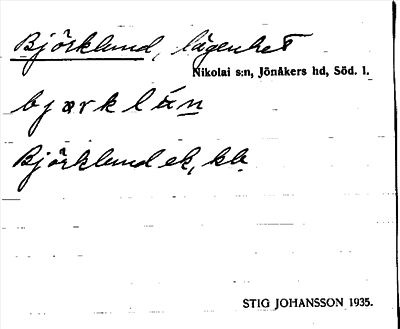 Björklund, lägenhet
Nikolai s:n, Jönåkers hd, Söd. l.
bjœrklún
Björklund ek, kb
STIG JOHANSSON 1935.